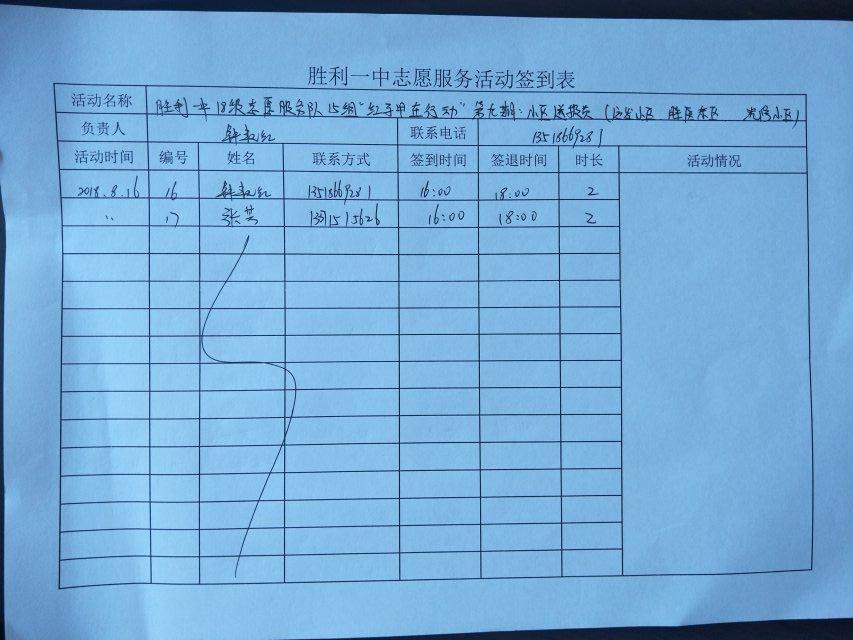 胜利一中志愿服务活动签到表
活动名称 胜利一中18级志愿服务队15组"红马甲在行动"第九期：小区送报点
负责人 联系电话 13518669281
活动时间 编号 姓名 联系方式 签到时间 签退时间 时长 活动情况
2018.8.16 16 13518669281 16:00 18:00 2
〃 17 张芸 16:00 18:00 2